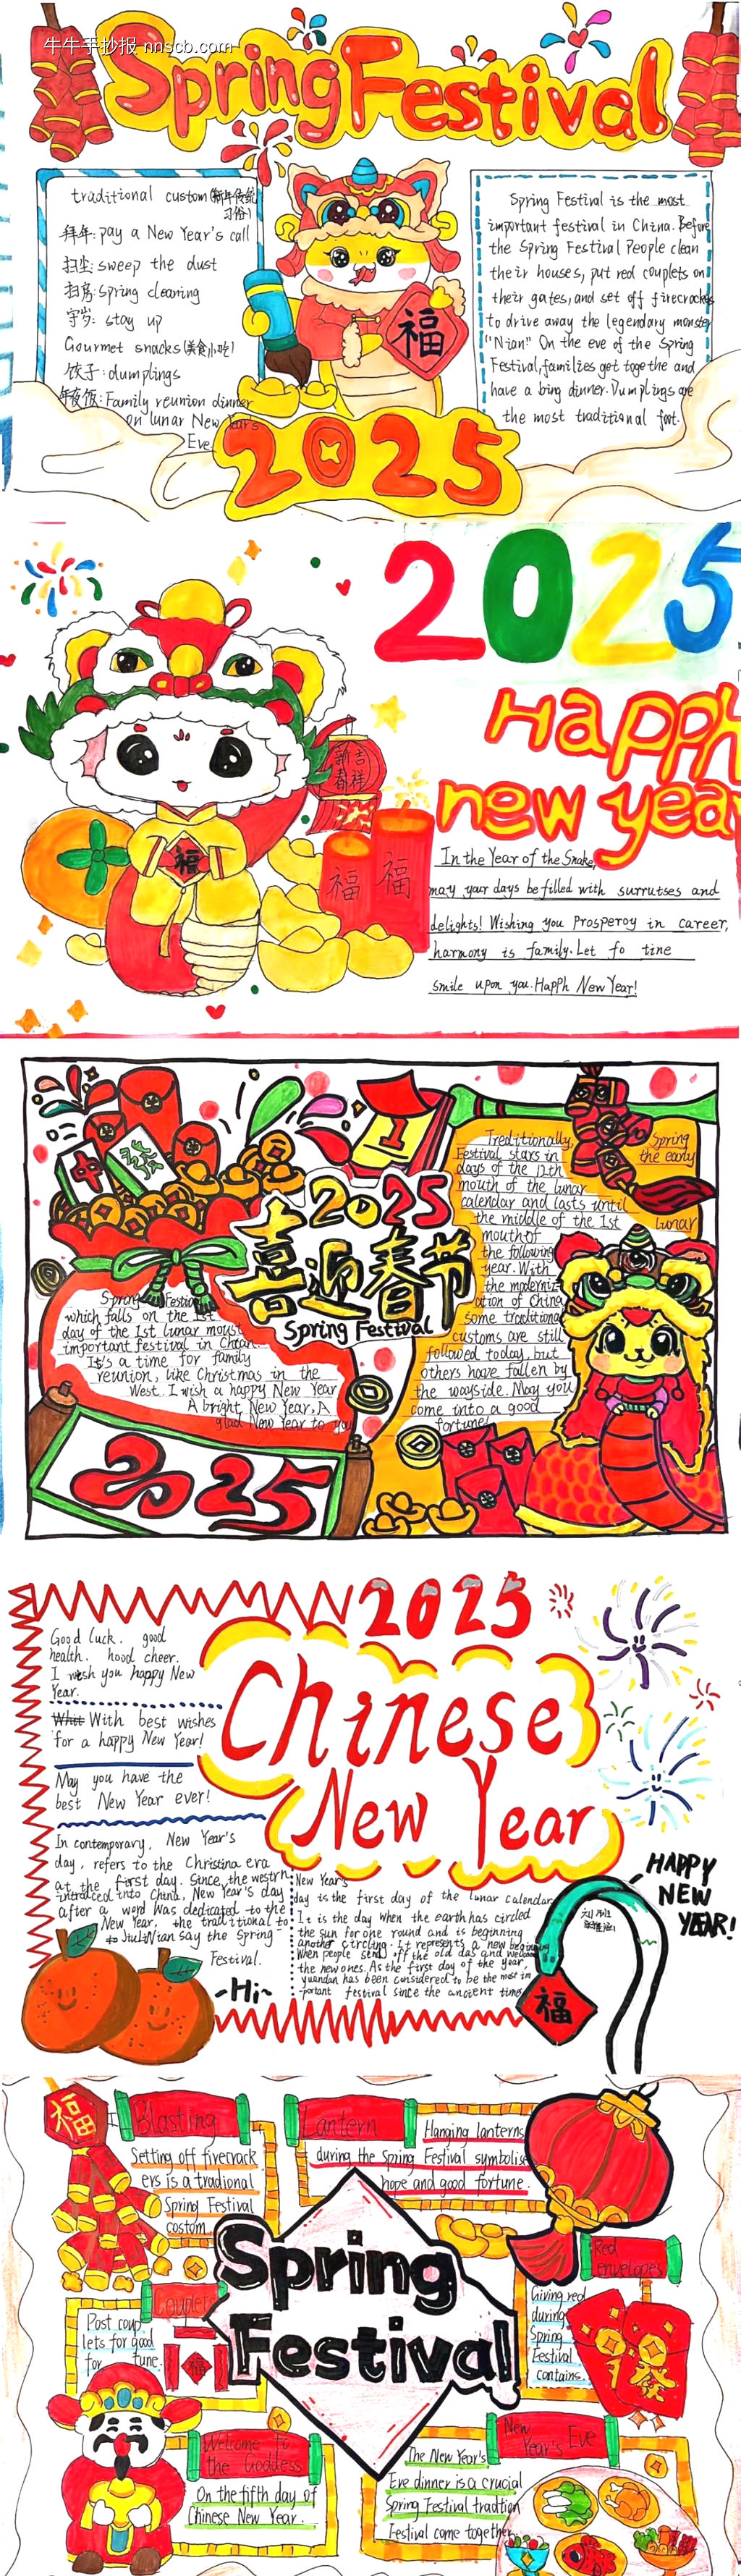 牛牛手抄报 nnscb.com
Spring Festival
traditional custom(新年传统
习俗)
拜年:pay a New Year's call
扫尘:sweep the dust
扫房:spring cleaning
守岁: stay up
Gourmet snacks(美食小吃)
饺子:dumplings
年夜饭:Family reunion dinner
on lunar New Year's
Eve.
福
2025
Spring Festival is the most
important festival in China. Before
the Spring Festival People clean
their houses, put red couplets on
their gates, and set off firecrackes
to drive away the legendary monster
"Nian" On the eve of the Spring
Festival, families get togethe and
have a bing dinner. Dumplings are
the most traditional foot.
2025
Happh
new yea
新吉
春祥
福
福 福
In the Year of the Snake,
may your days be filled with surrutses and
delights! Wishing you Prosperoy in career,
harmony is family. Let fo tine
smile upon you. Happh New Year!
中
發
1
2025
喜迎春节
Spring Festival
Spring Festival
which falls on the 1st
day of the 1st lunar moust
important festival in Chtan.
It's a time for family
reunion, like Christmas in the
West. I wish a happy New Year
A bright New Year, A
glad New Year to you
2025
Treditionally, Spring
Festival stars in the early
days of the 12th
mouth of the lunar
calendar and lasts until
the middle of the 1st lunar
mouth of
the following
year. With
the moderniz
ation of China,
some traditional
customs are still
followed today, but
others have fallen by
the wayside. May you
come into a good
fortune!
2025
Chinese
New Year
Good luck, good
health, hood cheer.
I wish you happy New
Year.
With best wishes
for a happy New Year!
May you have the
best New Year ever!
In contemporary, New Year's
day, refers to the Christina era
at the first day. Since the westrn
introced into China, New Year's day
after a word was dedicated to the
New Year, the traditional to
JuliNian say the Spring
Festival.
~Hi~
New Year's
day is the first day of the lunar calendar
It is the day when the earth has circled
the sun for one round and is beginning
another circling. It represents a new beginning
When people send off the old das and welcome
the new ones. As the first day of the year,
yuandan has been considered to be the most im
-portant festival since the ancient times
HAPPY
NEW
YEAR!
福
福
Blasting
Setting off firecrack
ers is a tradional
Spring Festival
costom
Lantern
Hanging lanterns
during the Spring Festival symbolise
hope and good fortune.
Spring
Festival
Couplets
Post coup
lets for good
for tune.
福
Red
envelopes
Giving red
during
Spring
Festival
contains.
Welcome to
the Goddess
On the fifth day of
Chinese New Year.
New
Year's Eve
The New Year's
Eve dinner is a crucial
Spring Festival tradtion
Festival come together